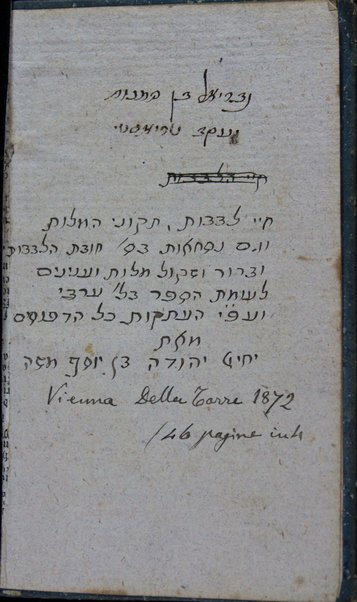 גבריאל בן המנוח
יעקב טריאסטי
חיי הלבבות
חיי לבבות, תקוני המלות
וגם נסחאות בס' חובת הלבבות
וברור ושקול מלות וענינים
לעומת הספר בל' ערבי
ועפ״י העתקות כל הדפוסים
מאת
יהודה בן יוסף משה
Vienna Della Torre 1872
146 pagine in 4